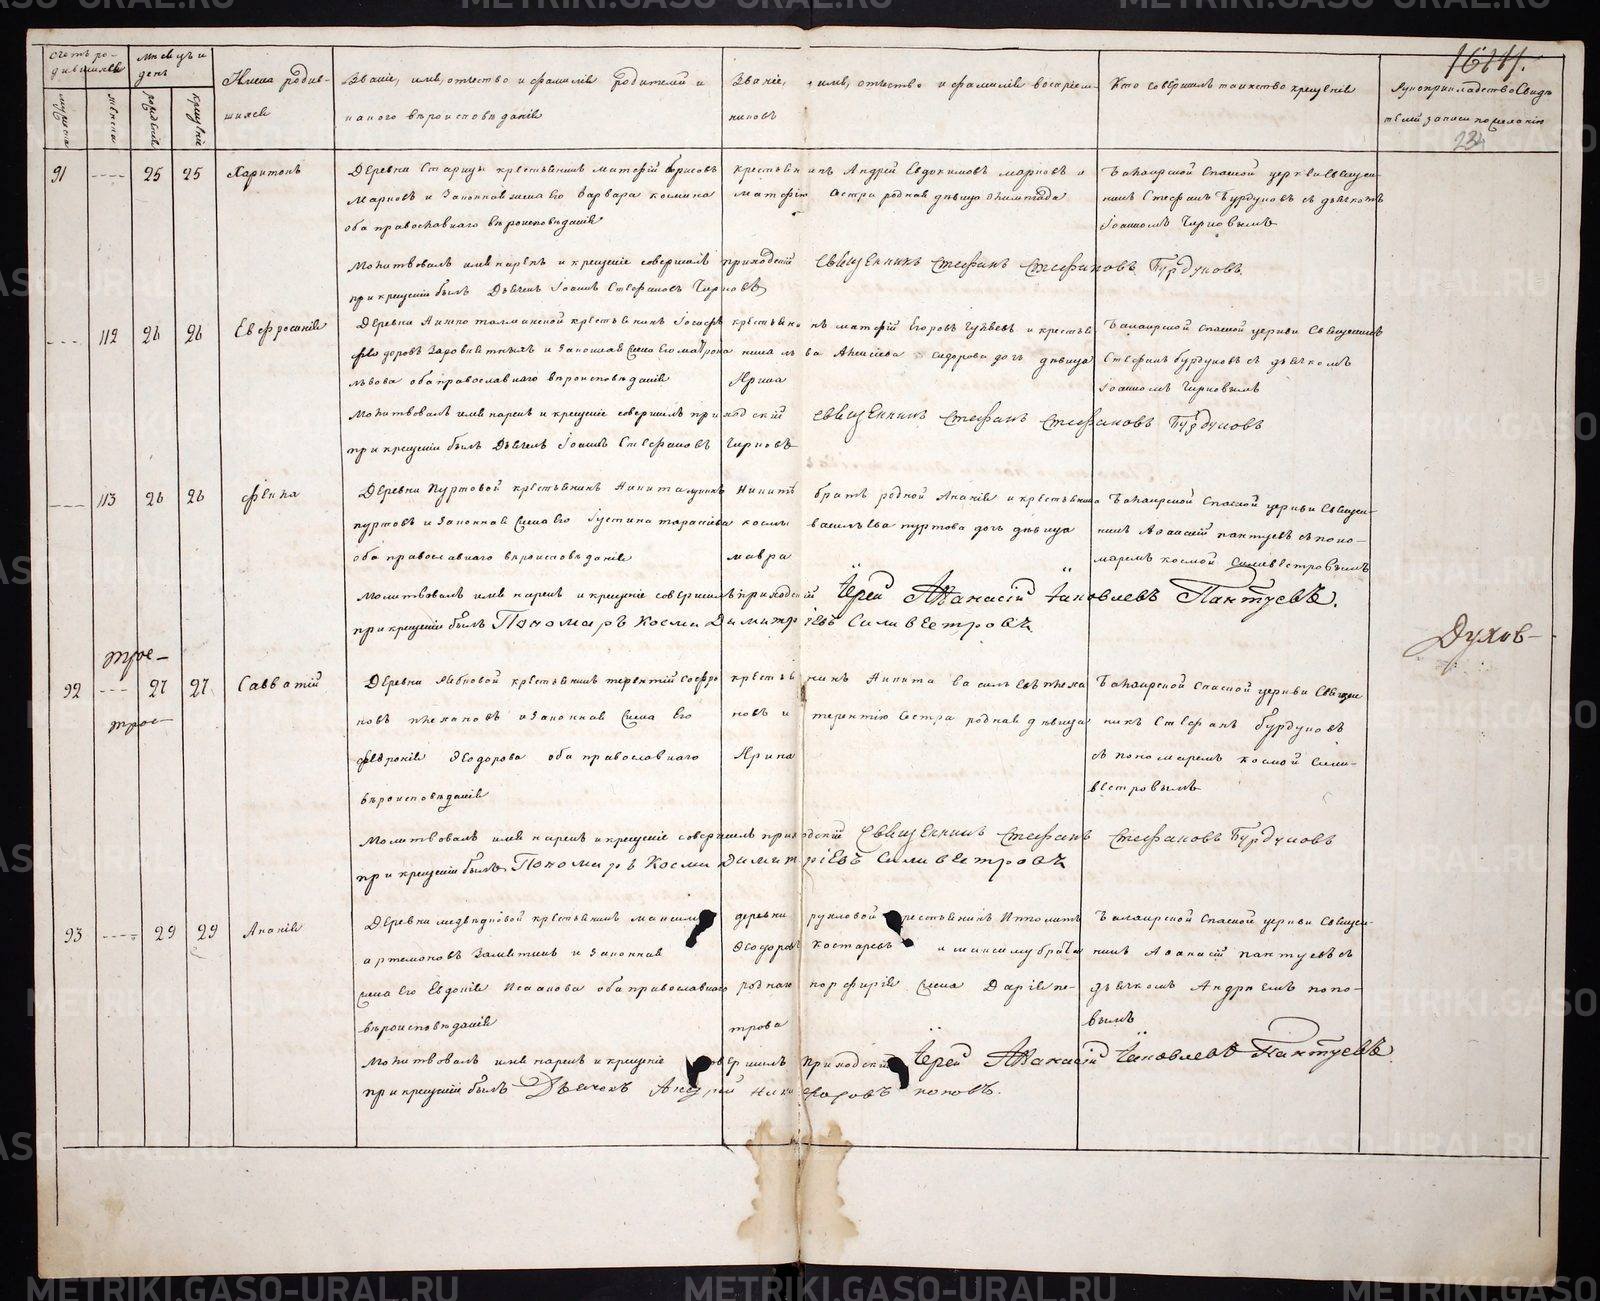 Счетъ ро-
дившихся
Мѣсяцъ и
день
мужска
женска
рожденія
крещенія
Имена родив-
шихся
Званіе, имя, отчество и фамилія родителей и
какого вѣроисповѣданія
Званіе, имя, отчество и фамилія воспріем-
никовъ
Кто совершалъ таинство крещенія
Рукоприкладство свидѣ
телей записи по желанію
91 ---- 25 25 Харитонъ
Деревни Старицы крестьянинъ Матфій Борисовъ
Марковъ и законная жена его Варвара Космина
оба православнаго вѣроисповѣданія
крестьянинъ Андрей Евдокимовъ Марковъ и
Матфію сестра родная дѣвица Олимпіада
Спасской церкви священ-
никъ Стефанъ Бурдуковъ съ дьячкомъ
Іоанномъ Черновымъ
Молитвовалъ имя нарекъ и крещеніе совершалъ приходскій священникъ Стефанъ Стефановъ Бурдуковъ
при крещеніи былъ Дьячекъ Іоаннъ Стефановъ Черновъ
---- 112 26 26 Евфросинія
Деревни крестьянинъ
Ѳедоровъ и законная жена его Матрона
Львова оба православнаго вѣроисповѣданія
крестьянинъ Матфій Егоровъ и крестья
нина Сидорова дочь дѣвица
Ирина
Спасской церкви священникъ
Стефанъ Бурдуковъ съ дьячкомъ
Іоанномъ Черновымъ
Молитвовалъ имя нарекъ и крещеніе совершилъ приходскій священникъ Стефанъ Стефановъ Бурдуковъ
при крещеніи былъ Дьячекъ Іоаннъ Стефановъ Черновъ
---- 113 26 26 Ѳекла
Деревни Пуртовой крестьянинъ Никита
Пуртовъ и законная жена его Іустина Тарасіева
оба православнаго вѣроисповѣданія
Никитѣ братъ родной Ананія и крестьянина
Космы Васильева Пуртова дочь дѣвица
Мавра
Спасской церкви священ-
никъ Аѳанасій Пантуевъ съ поно-
маремъ Космой Силивестровымъ
Молитвовалъ имя нарекъ и крещеніе совершилъ приходскій Іерей Аѳанасій Іаковлевъ Пантуевъ.
при крещеніи былъ Пономарь Косма Димитріевъ Силивестровъ
92 ---- 27 27 Савватій
трое-
трое-
Деревни крестьянинъ Терентій Софро
новъ Плехановъ и законная жена его
Февронія Ѳеодорова оба православнаго
вѣроисповѣданія
крестьянинъ Никита Васильевъ Плеха
новъ и Терентію сестра родная дѣвица
Ирина
Спасской церкви священ
никъ Стефанъ Бурдуковъ
съ пономаремъ Космой Сили-
вестровымъ
Молитвовалъ имя нарекъ и крещеніе совершилъ приходскій священникъ Стефанъ Стефановъ Бурдуковъ
при крещеніи былъ Пономарь Косма Димитріевъ Силивестровъ
93 ---- 29 29 Ананія
Деревни Медвѣдковой крестьянинъ Максимъ
Артемоновъ и законная
жена его Евдокія Исакова оба православнаго
вѣроисповѣданія
деревни крестьянинъ Ипполитъ
Ѳеодоровъ Костаревъ и Максиму брата
роднаго Порфирія жена Дарія Пе-
трова
Спасской церкви священ-
никъ Аѳанасій Пантуевъ съ
дьячкомъ Андреемъ Попо-
вымъ
Молитвовалъ имя нарекъ и крещеніе совершилъ приходскій Іерей Аѳанасій Іаковлевъ Пантуевъ
при крещеніи былъ Дьячекъ Андрей Никифоровъ Поповъ.
Духов-
METRIKI.GASO-URAL.RU